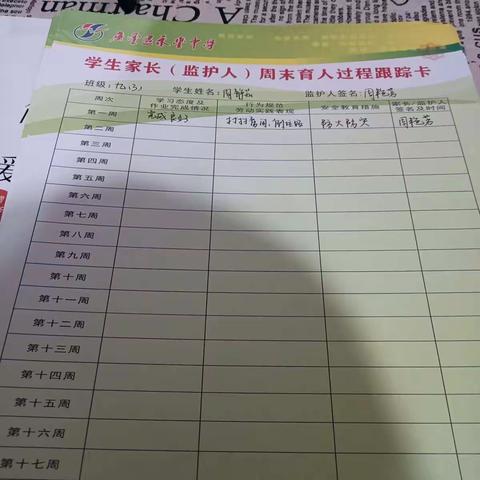 A Chairman
学生家长（监护人）周末育人过程跟踪卡
班级： 学生姓名：周 监护人签名：周艳芳
周次 学习态度及作业完成情况 行为规范劳动实践表现 安全教育措施 家长/监护人签名及时间
第一周 完成良好 打扫房间 防火防突 周艳芳
第二周
第三周
第四周
第五周
第六周
第七周
第八周
第九周
第十周
第十一周
第十二周
第十三周
第十四周
第十五周
第十六周
第十七周